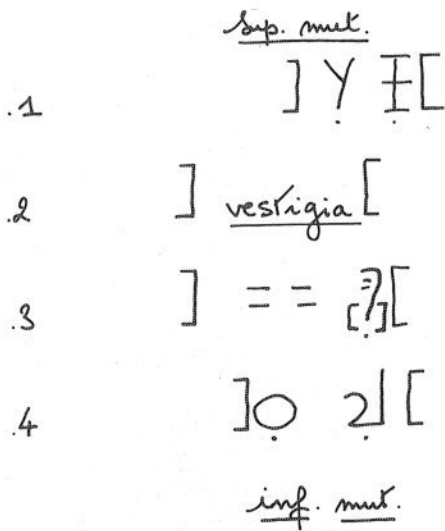 sup. mut.
.1 ] Ỵ [
.2 ] vestigia [
.3 ] = = [.][
.4 ]Ọ [
inf. mut.